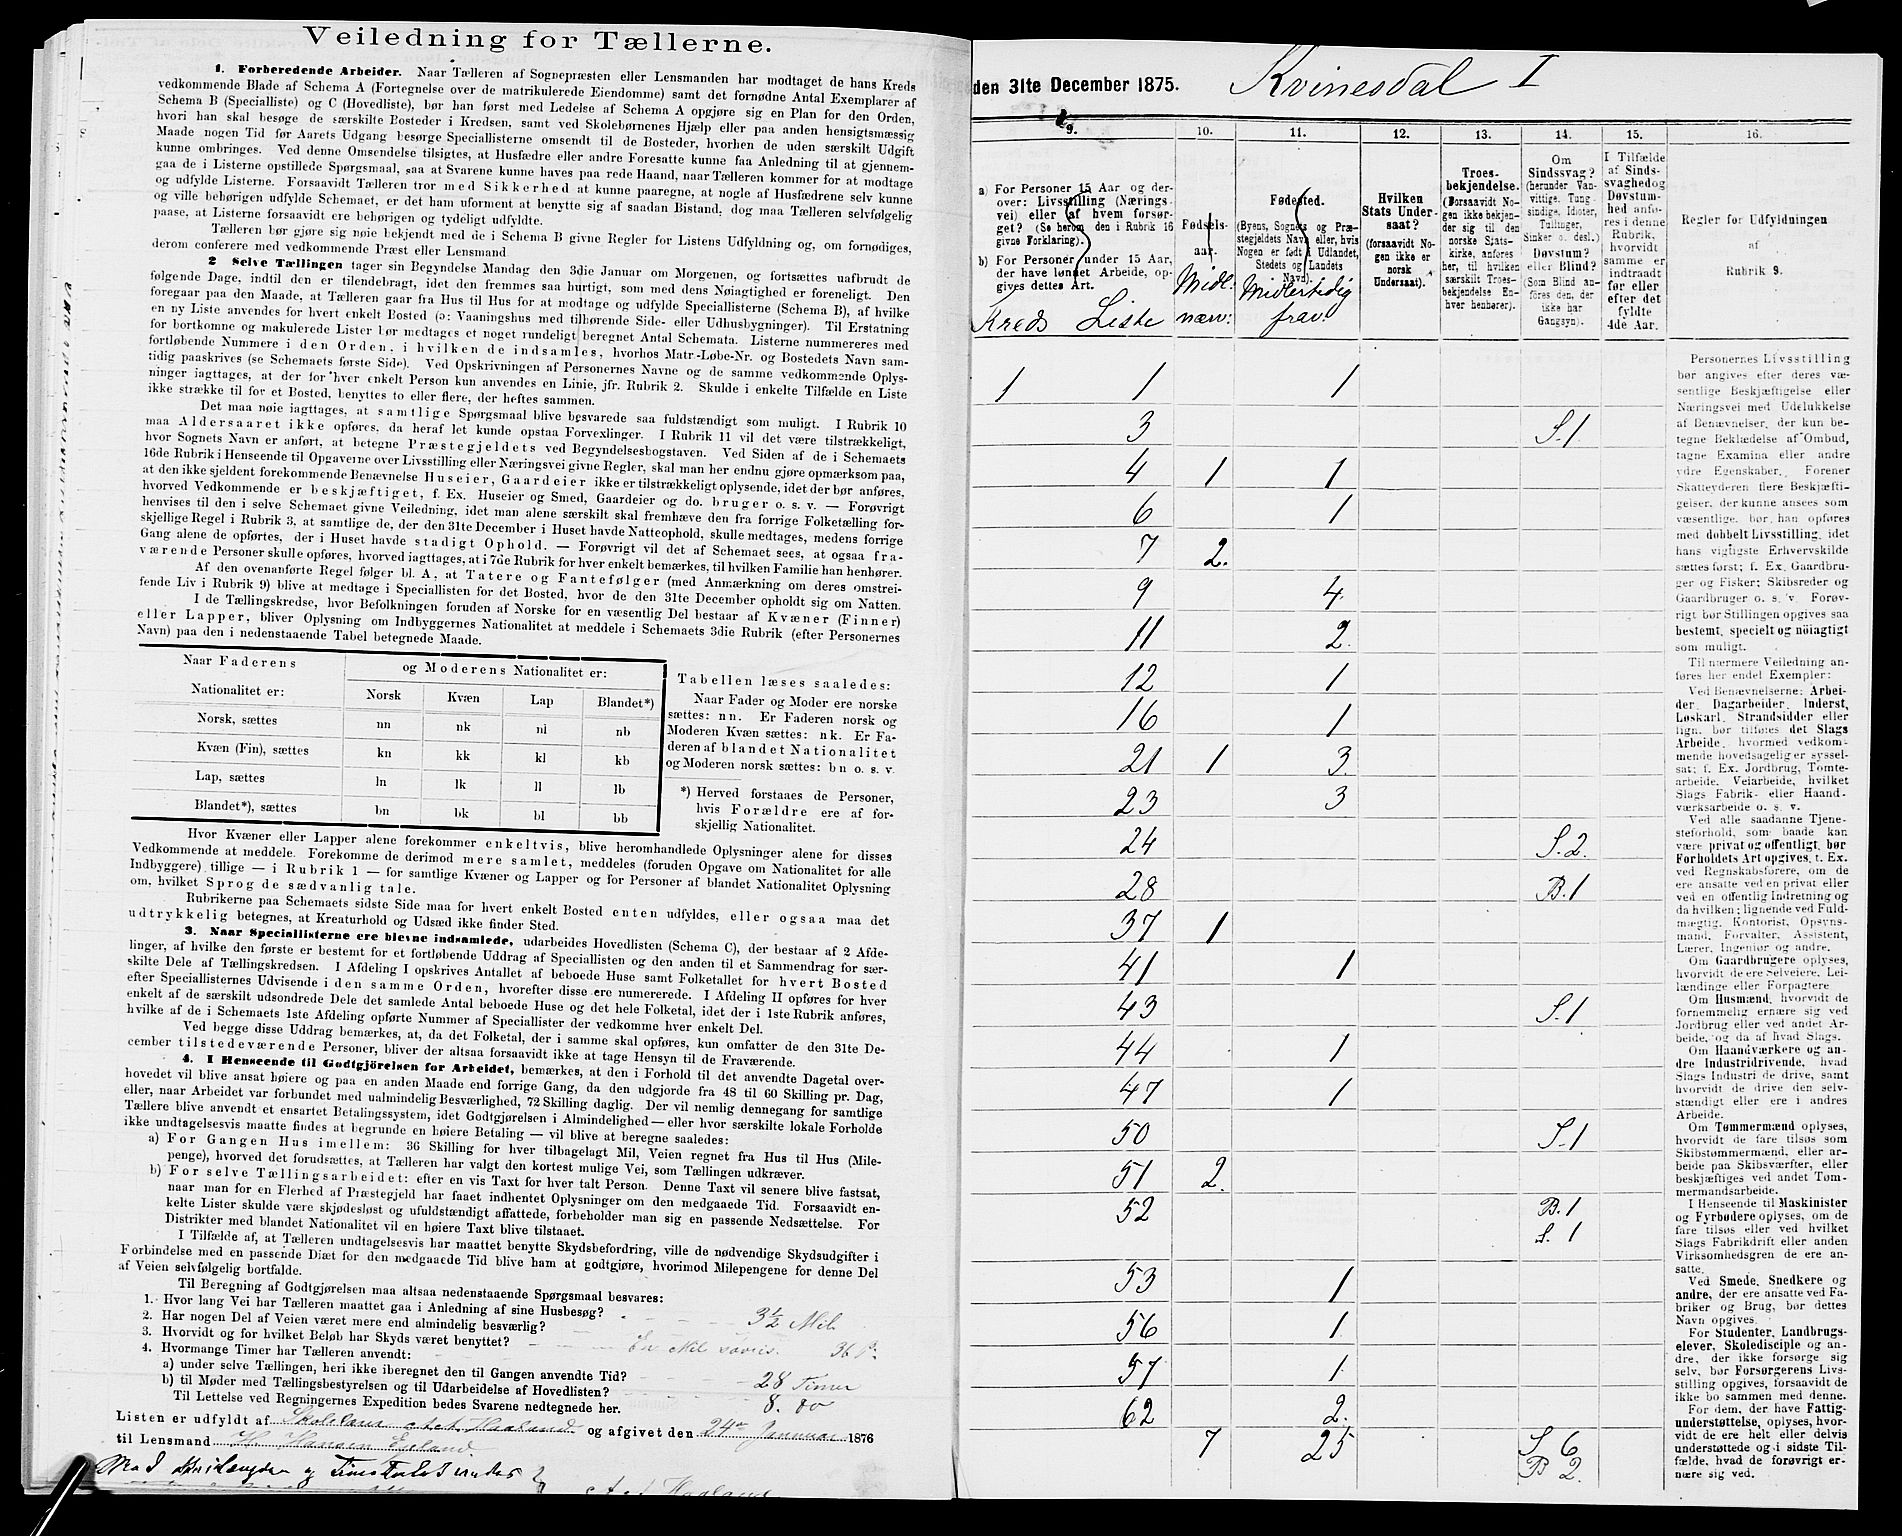 Veiledning for Tællerne.
1. Forberedende Arbeider. Naar Tælleren af Sognepræsten eller Lensmanden har modtaget de hans Kreds
vedkommende Blade af Schema A (Fortegnelse over de matrikulerede Eiendomme) samt det fornødne Antal Exemplarer af
Schema B (Specialliste) og C (Hovedliste), bør han først med Ledelse af Schema A opgjøre sig en Plan for den Orden,
hvori han skal besøge de særskilte Bosteder i Kredsen, samt ved Skolebørnenes Hjælp eller paa anden hensigtsmæssig
Maade nogen Tid før Aarets Udgang besørge Speciallisterne omsendt til de Bosteder, hvorhen de uden særskilt Udgift
kunne ombringes. Ved denne Omsendelse tilsigtes, at Husfædre eller andre Foresatte kunne faa Anledning til at gjennem-
gaa de i Listerne opstillede Spørgsmaal, saa at Svarene kunne haves paa rede Haand, naar Tælleren kommer for at modtage
og udfylde Listerne. Forsaavidt Tælleren tror med Sikkerhed at kunne paaregne, at nogle af Husfædrene selv kunne
og ville behørigen udfylde Schemaet, er det ham uforment at benytte sig af saadan Bistand, dog maa Tælleren selvfølgelig
paase, at Listerne forsaavidt ere behørigen og tydeligt udfyldte.
Tælleren bør gjøre sig nøie bekjendt med de i Schema B givne Regler for Listens Udfyldning og, om fornødiges,
derom conferere med vedkommende Præst eller Lensmand
2 Selve Tællingen tager sin Begyndelse Mandag den 3die Januar om Morgenen, og fortsættes uafbrudt de
følgende Dage, indtil den er tilendebragt, idet den fremmes saa hurtigt, som med dens Nøiagtighed er foreneligt. Den
foregaar paa den Maade, at Tælleren gaar fra Hus til Hus for at modtage og udfylde Speciallisterne (Schema B), af hvilke
en ny Liste anvendes for hvert enkelt Bosted (ɔ: Vaaningshus med tilhørende Side- eller Udhusbygninger). Til Erstatning
for bortkomne og makulerede Lister bør medtages et noget rundeligt beregnet Antal Schemata. Listerne nummereres med
fortløbende Nummere i den Orden, i hvilken de indsamles, hvorhos Matr.-Løbe-Nr. og Bostedets Navn sam-
tidig paaskrives (se Schemaets første Side). Ved Opskrivningen af Personernes Navne og de samme vedkommende Oplys-
ninger iagttages, at der for hver enkelt Person kun anvendes en Linie, jfr. Rubrik 2. Skulde i enkelte Tilfælde en Liste
ikke strække til for et Bosted, benyttes to eller flere, der heftes sammen.
Det maa nøie iagttages, at samtlige Spørgsmaal blive besvarede saa fuldstændigt som muligt. I Rubrik 10
maa Aldersaaret ikke opføres, da heraf let kunde opstaa Forvexlinger. I Rubrik 11 vil det være tilstrækkeligt,
hvor Sognets Navn er anført, at betegne Præstegjeldets ved Begyndelsesbogstaven. Ved Siden af de i Schemaets
16de Rubrik i Henseende til Opgaverne over Livsstilling eller Næringsvei givne Regler, skal man her endnu gjøre opmærksom paa,
at den ikke sjeldent forekommende Benævnelse Huseier, Gaardeier ikke er tilstrækkeligt oplysende, idet der bør anføres,
hvorved Vedkommende er beskjæftiget, f. Ex. Huseier og Smed, Gaardeier og do. bruger o. s. v. — Forøvrigt
henvises til den i selve Schemaet givne Veiledning, idet man alene særskilt skal fremhæve den fra forrige Folketælling for-
skjellige Regel i Rubrik 3, at samtlige de, der den 31te December i Huset havde Natteophold, skulle medtages, medens forrige
Gang alene de opførtes, der i Huset havde stadigt Ophold. — Forøvrigt vil det af Schemaet sees, at ogsaa fra-
værende Personer skulle opføres, hvorved iagttages, at i 7de Rubrik for hver enkelt bemærkes, til hvilken Familie han henhører.
Af den ovenanførte Regel følger bl. A., at Tatere og Fantefølger (med Anmærkning om deres omstrei-
fende Liv i Rubrik 9) blive at medtage i Speciallisten for det Bosted, hvor de den 31te December opholdt sig om Natten.
I de Tællingskredse, hvor Befolkningen foruden af Norske for en væsentlig Del bestaar af Kvæner (Finner)
eller Lapper, bliver Oplysning om Indbyggernes Nationalitet at meddele i Schemaets 3die Rubrik (efter Personernes
Navn) paa den i nedenstaaende Tabel betegnede Maade.
Naar Faderens
Nationalitet er:
og Moderens Nationalitet er:
Norsk Kvæn Lap Blandet*)
Norsk, sættes nn nk nl nb
Kvæn (Fin), sættes kn kk kl kb
Lap, sættes ln lk ll lb
Blandet*), sættes bn bk bl bb
Tabellen læses saaledes:
Naar Fader og Moder ere norske
sættes: nn. Er Faderen norsk og
Moderen Kvæn sættes: nk. Er Fa-
deren af blandet Nationalitet
og Moderen norsk sættes: bn o. s. v.
*) Herved forstaaes de Personer,
hvis Forældre ere af for-
skjellig Nationalitet.
Hvor Kvæner eller Lapper alene forekommer enkeltvis, blive heromhandlede Oplysninger alene for disses
Vedkommende at meddele. Forekomme de derimod mere samlet, meddeles (foruden Opgave om Nationalitet for alle
Indbyggere) tillige — i Rubrik 1 — for samtlige Kvæner og Lapper og for Personer af blandet Nationalitet Oplysning
om, hvilket Sprog de sædvanlig tale.
Rubrikerne paa Schemaets sidste Side maa for hvert enkelt Bosted enten udfyldes, eller ogsaa maa det
udtrykkelig betegnes, at Kreaturhold og Udsæd ikke finder Sted.
3. Naar Speciallisterne ere blevne indsamlede, udarbeides Hovedlisten (Schema C), der bestaar af 2 Afde-
linger, af hvilke den første er bestemt for et fortløbende Uddrag af Speciallisten og den anden til et Sammendrag for sær-
skilte Dele af Tællingskredsen. I Afdeling I opskrives Antallet af beboede Huse samt Folketallet for hvert Bosted
efter Speciallisternes Udvisende i den samme Orden, hvorefter disse ere numererede. I Afdeling II opføres for hver
enkelt af de særskilt udsondrede Dele det samlede Antal beboede Huse og det hele Folketal, idet der i 1ste Rubrik anføres,
hvilke af de i Schemaets 1ste Afdeling opførte Nummer af Speciallister der vedkomme hver enkelt Del.
Ved begge disse Uddrag bemærkes, at, da det Folketal, der i samme skal opføres, kun omfatter de den 31te De-
cember tilstedeværende Personer, bliver der altsaa forsaavidt ikke at tage Hensyn til de Fraværende.
4. I Henseende til Godtgjörelsen for Arbeidet, bemærkes, at den i Forhold til det anvendte Dagetal over-
hovedet vil blive ansat høiere og paa en anden Maade end forrige Gang, da den udgjorde fra 48 til 60 Skilling pr. Dag,
eller, naar Arbeidet var forbundet med ualmindelig Besværlighed, 72 Skilling daglig. Der vil nemlig dennegang for samtlige
Tællere blive anvendt et ensartet Betalingssystem, idet Godtgjørelsen i Almindelighed — eller hvor særskilte lokale Forholde
ikke undtagelsesvis maatte findes at begrunde en høiere Betaling — vil blive at beregne saaledes:
a) For Gangen Hus imellem: 36 Skilling for hver tilbagelagt Mil, Veien regnet fra Hus til Hus (Mile-
penge), hvorved det forudsættes, at Tælleren har valgt den kortest mulige Vei, som Tællingen udkræver.
b) For selve Tællingsarbeidet: efter en vis Taxt for hver talt Person. Denne Taxt vil senere blive fastsat,
naar man for en Flerhed af Præstegjeld har faaet indhentet Oplysninger om den medgaaede Tid. Forsaavidt en-
kelte Lister skulde være skjødesløst og ufuldstændigt affattede, forbeholder man sig en passende Nedsættelse. For
Distrikter med blandet Nationalitet vil en høiere Taxt blive tilstaaet.
I Tilfælde af, at Tælleren undtagelsesvis har maattet benytte Skydsbefordring, ville de nødvendige Skydsudgifter i
Forbindelse med en passende Diæt for den medgaaede Tid blive ham at godtgjøre, hvorimod Milepengene for denne Del
af Veien selvfølgelig bortfalde.
Til Beregning af Godtgjørelsen maa altsaa nedenstaaende Spørgsmaal besvares:
1. Hvor lang Vei har Tælleren maattet gaa i Anledning af sine Husbesøg? 3½ Mil
2. Har nogen Del af Veien været mere end almindelig besværlig?
3. Hvorvidt og for hvilket Beløb har Skyds været benyttet?
4. Hvormange Timer har Tælleren anvendt:
a) under selve Tællingen, heri ikke iberegnet den til Gangen anvendte Tid? 28 Timer
b) til Møder med Tællingsbestyrelsen og til Udarbeidelse af Hovedlisten? 8. do
Til Lettelse ved Regningernes Expedition bedes Svarene nedtegnede her.
Listen er udfyldt af Haaland og afgivet den 24de Januar 1876
til Lensmand H. Hansen Egeland
den 31te December 1875. Kvinesdal I
9. 10. 11. 12. 13. 14. 15. 16.
a) For Personer 15 Aar og der-
over: Livsstilling (Nærings-
vei) eller af hvem forsør-
get? (Se herom den i Rubrik 16
givne Forklaring).
b) For Personer under 15 Aar,
der have lønnet Arbeide, op-
gives dettes Art.
Kreds Liste
Fødsels-
aar.
Midl.
nærv:
Fødested.
(Byens, Sognets og Præ-
stegjeldets Navn eller, hvis
Nogen er født i Udlandet,
Stedets og Landets
Navn).
Midlertidig
frav:
Hvilken
Stats Under-
saat?
(forsaavidt No-
gen ikke er
norsk
Undersaat).
Troes-
bekjendelse.
(Forsaavidt No-
gen ikke bekjen-
der sig til den
norske Stats-
kirke, anføres
her, til hvilken
særskilt Troes-
bekjendelse En-
hver henhører).
Om
Sindssvag?
(herunder Van-
vittige, Tung-
sindige, Idioter,
Tullinger,
Sinker o. desl.)
Døvstum?
eller Blind?
(Som Blind an-
føres den, der
ikke har
Gangsyn).
I Tilfælde
af Sinds-
svaghed og
Døvstum-
hed anfø-
res i denne
Rubrik,
hvorvidt
samme er
indtraadt
før eller
efter det
fyldte
4de Aar.
Regler for Udfyldningen
af
Rubrik 9.
1 1 1
3 S.1
4 1 1
6 1
7 2.
9 4
11 2.
12 1
16 1
21 1 3.
23 3
24 S.2.
28 B.1
37 1
41 1
43 S.1
44 1
47 1
50 S.1
51 2.
52 B.1
S.1
53 1
56 1
57 1
62 2.
7 25 S 6
B 2.
Personernes Livsstilling
bør angives efter deres væ-
sentlige Beskjæftigelse eller
Næringsvei med Udelukkelse
af Benævnelser, der kun be-
tegne Beklædelse af Ombud,
tagne Examina eller andre
ydre Egenskaber. Forener
Skatteyderen flere Beskjæfti-
gelser, der kunne ansees som
væsentlige, bør han opføres
med dobbelt Livsstilling, idet
hans vigtigste Erhvervskilde
sættes først; f. Ex. Gaardbru-
ger og Fisker; Skibsreder og
Gaardbruger o. s. v. Forøv-
rigt bør Stillingen opgives saa
bestemt, specielt og nöiagtigt
som muligt.
Til nærmere Veiledning an-
føres her endel Exempler:
Ved Benævnelserne: Arbei-
der, Dagarbeider, Inderst,
Løskarl, Strandsidder eller
lign. bør tilføies det Slags
Arbeide, hvormed vedkom-
mende hovedsagelig er syssel-
sat; f. Ex. Jordbrug, Tømte-
arbeide, Veiarbeide, hvilket
Slags Fabrik- eller Haand-
værksarbeide o. s. v.
Ved alle saadanne Tjene-
steforhold, som baade kan
være privat og offentligt, bør
Forholdets Art opgives, f. Ex.
ved Regnskabsførere, om de
ere ansatte ved en privat eller
ved en offentlig Indretning og
da hvilken; lignende ved Fuld-
mægtig, Kontorist, Opsyns-
mand, Forvalter, Assistent,
Lærer, Ingeniør og andre.
Om Gaardbrugere oplyses,
hvorvidt de ere Selveiere, Lei-
lændinge eller Forpagtere
Om Husmænd, hvorvidt de
fornemmelig ernære sig ved
Jordbrug eller ved andet Ar-
beide, og da af hvad Slags.
Om Haandværkere og an-
dre Industridrivende, hvad
Slags Industri de drive, samt
hvorvidt de drive den selv-
stændigt eller ere i andres
Arbeide.
Om Tømmermænd oplyses,
hvorvidt de fare tilsøs som
Skibstømmermænd, eller ar-
beide paa Skibsværfter, eller
beskjæftiges ved andet Tøm-
mermandsarbeide.
I Henseende til Maskinister
og Fyrbødere oplyses, om de
fare tilsøs eller ved hvilket
Slags Fabrikdrift eller anden
Virksomhedsgren de ere an-
satte.
Ved Smede, Snedkere og
andre, der ere ansatte ved Fa-
briker og Brug, bør dettes
Navn opgives.
For Studenter, Landbrugs-
elever, Skoledisciple og an-
dre, der ikke forsørge sig
selv, bør Forsørgerens Livs-
stilling opgives, forsaavidt de
ikke bo sammen med denne.
For dem, der have Fattig-
understøttelse, oplyses, hvor-
vidt de ere helt eller delvis
understøttede og i sidste Til-
fælde, hvad de forøvrigt er-
nære sig ved.